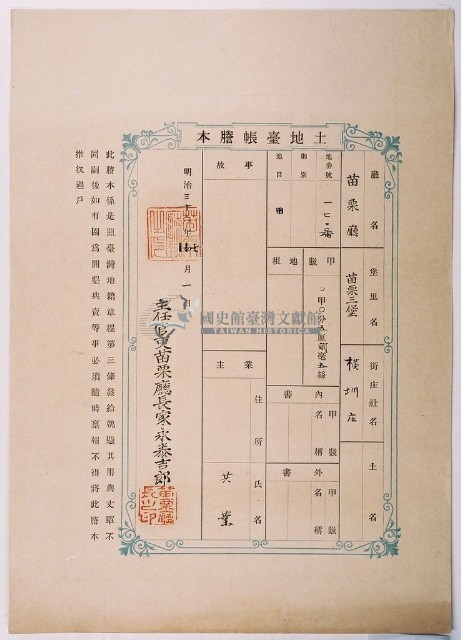 土地臺帳謄本
廳名
苗栗廳
堡里名
苗栗三堡
街庄社名
土名
地番號
一七〇番
則別
地目
田
甲數
地租
內書
甲數
名稱
外書
甲數
名稱
事故
業主
住所
氏名
共業
明治三十年七月一日
主任
苗栗廳長家永泰吉郎
苗栗廳長之印
此謄本係是照臺灣地籍章程第三條發給就過其用與丈單不
同嗣後如有因為開墾典賣等事必須隨時稟報不得將此謄本
推收過戶
國史館臺灣文獻館
TAIWAN HISTORICA